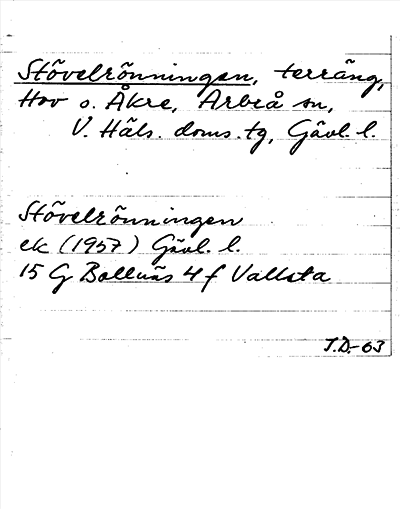 Stövelrönningen, terräng,
Hov o. Åkre, Arbrå sn,
V. Häls. doms. tg, Gävl. l.
Stövelrönningen
ek (1957) Gävl. l.
15 G Bollnäs 4 f Vallsta
T.D.-63